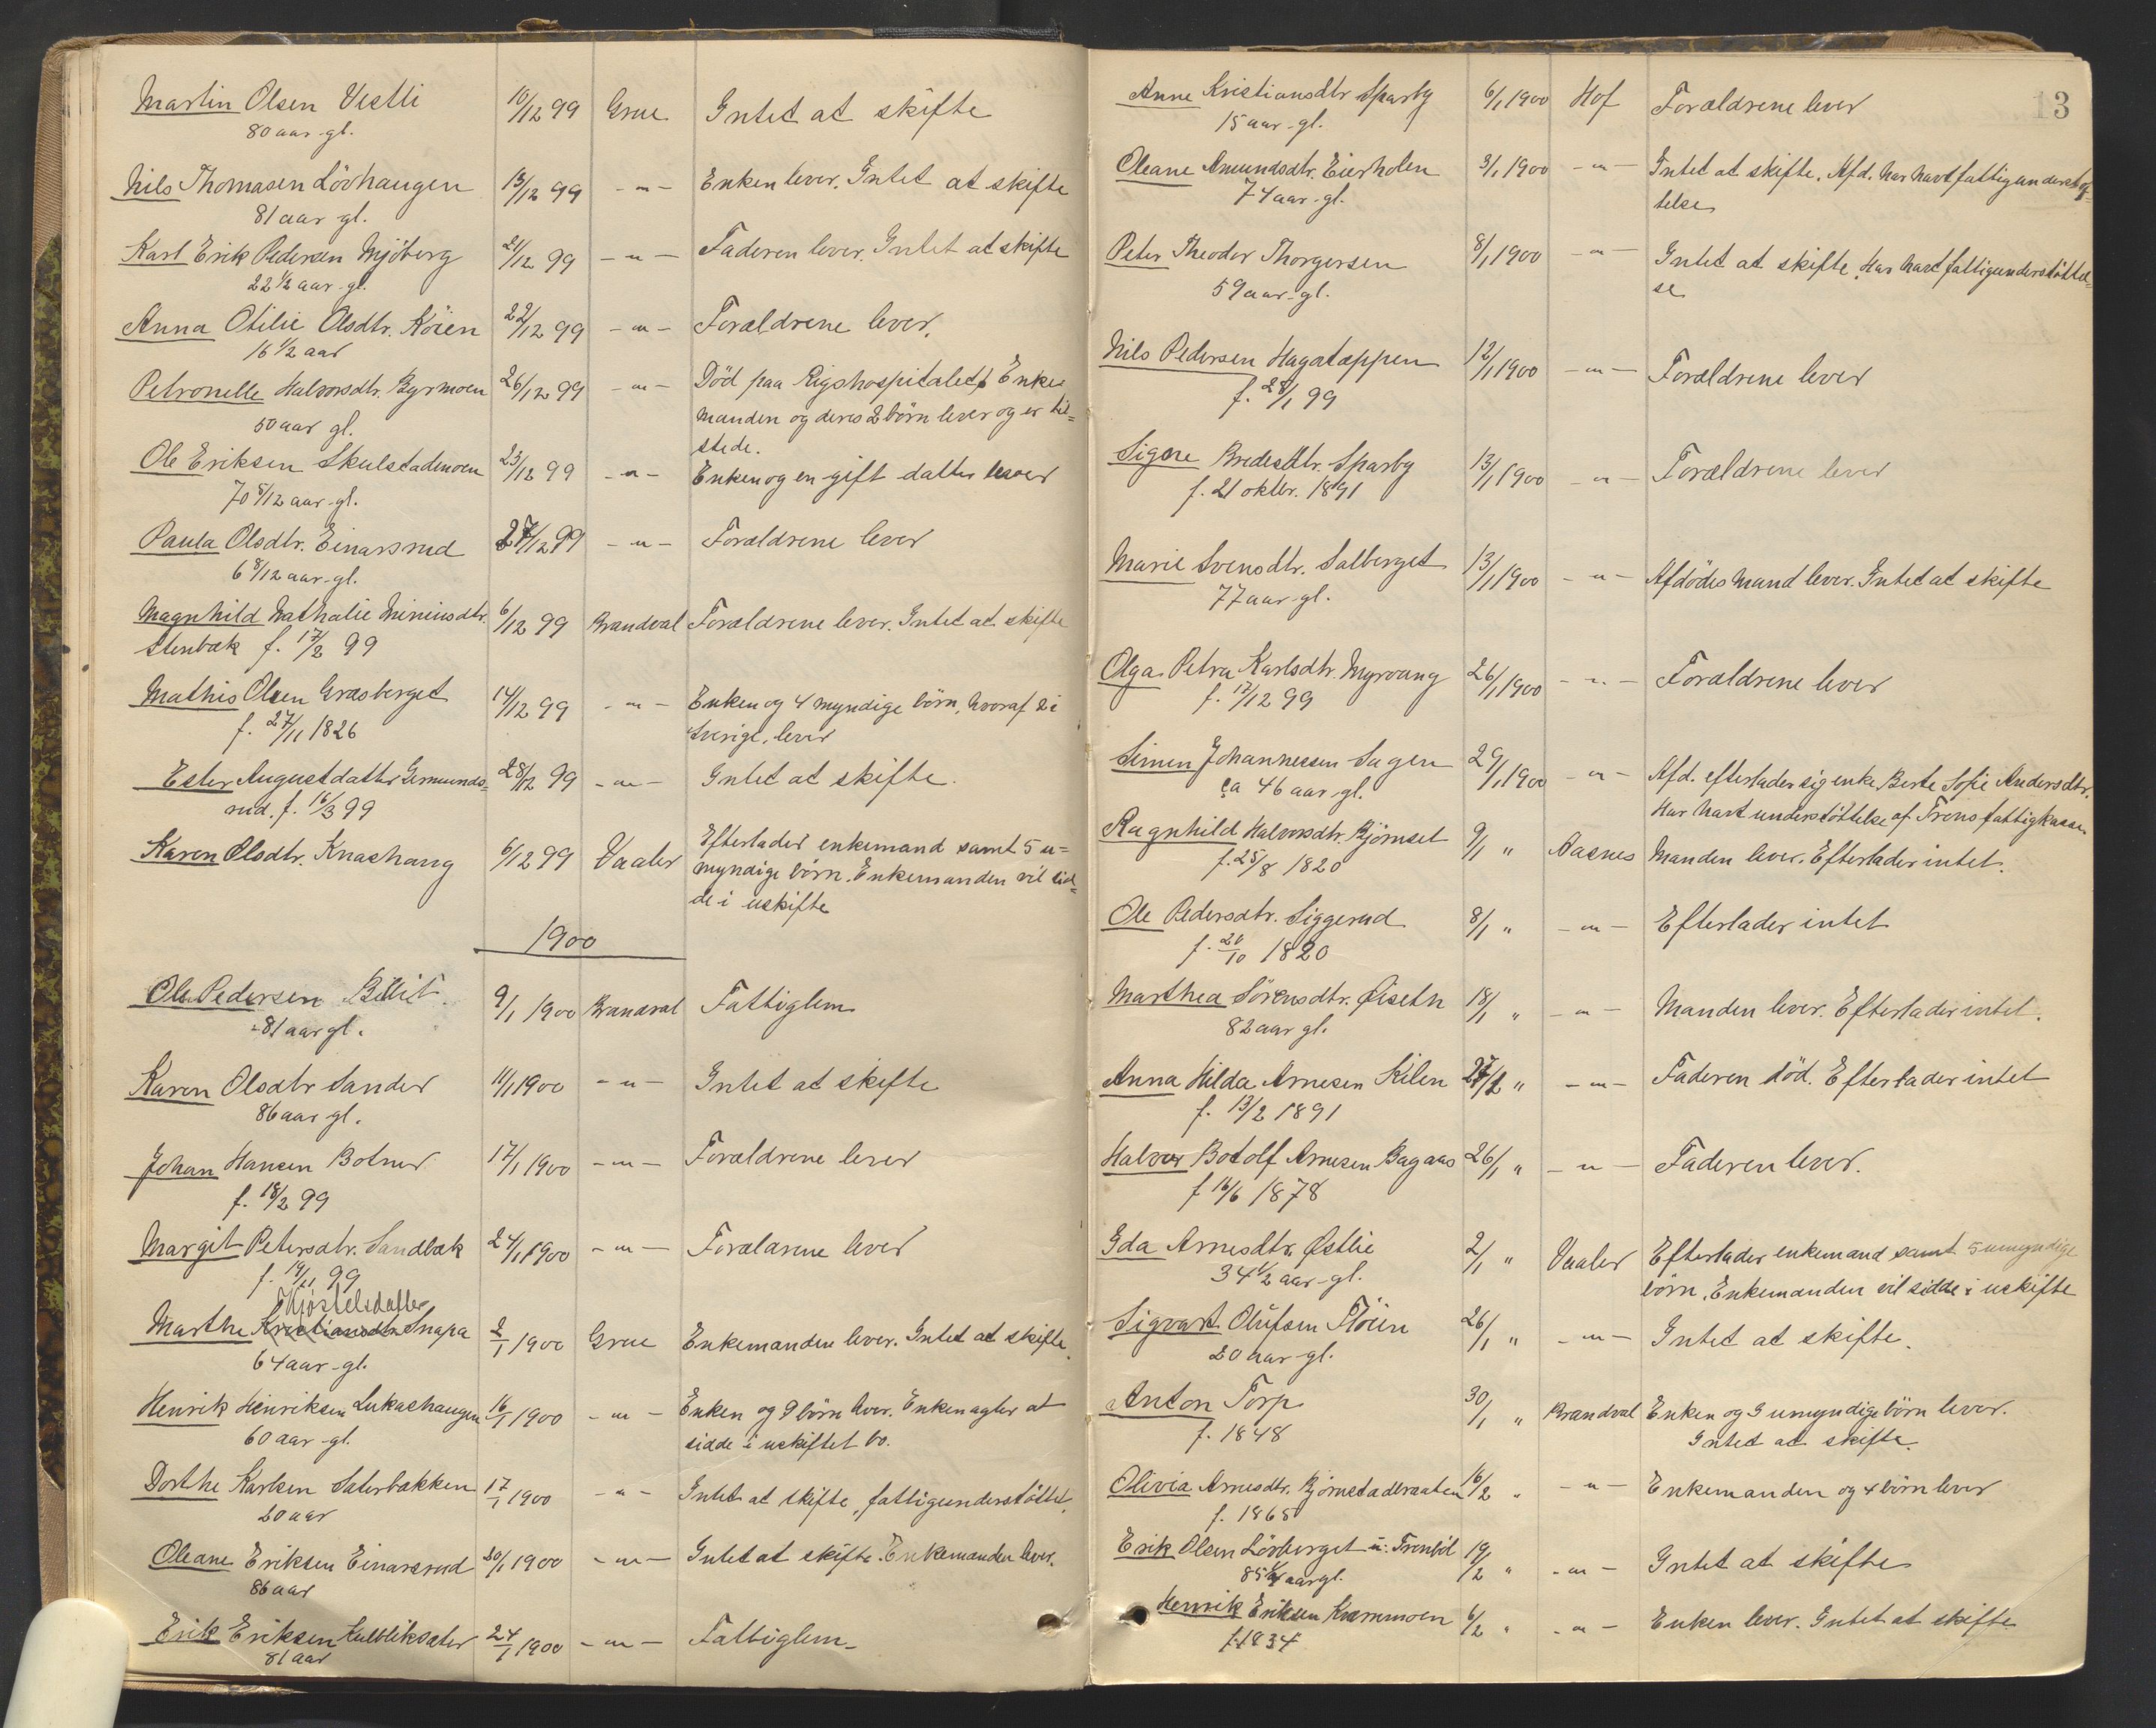 Martin Olsen Vestli 10/12 99 Grue Intet at skifte
80 aar gl.
Nils Thomasen Lövhaugen 13/12 99 -"- Enken lever. Intet at skifte
81 aar gl.
Karl Erik Pedersen Mjöberg 21/12 99 -"- Faderen lever. Intet at skifte
22 1/2 aar gl.
Anna Otilie Olsdtr. Köien 22/12 99 -"- Forældrene lever.
16 1/2 aar
Petronelle Halvorsdtr. Byrmoen 26/12 99 -"- Död paa Rigshospitalet. Enke-
50 aar gl. manden og deres 2 börn lever og er til=
stede.
Ole Eriksen Skulstadmoen 23/12 99 -"- Enken og en gift datter lever
70 5/12 aar gl.
Paula Olsdtr. Einarsrud 27/12 99 -"- Forældrene lever
6 8/12 aar gl.
Magnhild Nathalie Miniusdtr. 6/12 99 Brandval Forældrene lever. Intet at skifte
Stenbæk f. 17/2 99
Mathis Olsen Græsberget 14/12 99 -"- Enken og 4 myndige börn, hvoraf 2 i
f. 27/11 1826 Sverige, lever
Ester Augustdatter Gemunds= 28/12 99 -"- Intet at skifte.
rud. f. 16/3 99
Karen Olsdtr. Knashaug 6/12 99 Vaaler Efterlader enkemand samt 5 u=
myndige börn. Enkemanden vil sid=
de i uskifte
1900
Ole Pedersen Billit 9/1 1900 Brandval Fattiglem
81 aar gl.
Karen Olsdtr Sander 11/1 1900 -"- Intet at skifte
86 aar gl.
Johan Hansen Botner 17/1 1900 -"- Forældrene lever
f. 18/2 99
Margit Petersdtr. Sandbæk 24/1 1900 -"- Forældrene lever
f. 14/11 99
Kjöstelsdatter
Marthe Kristiansdtr Snapa 2/1 1900 Grue Enkemanden lever. Intet at skifte.
64 aar gl.
Henrik Henriksen Lukashaugen 16/1 1900 -"- Enken og 9 börn lever. Enken agter at
60 aar gl. sidde i uskiftet bo.
Dorthe Karlsen Sæterbakken 17/1 1900 -"- Intet at skifte, fattigunderstöttet.
20 aar
Oleane Eriksen Einarsrud 20/1 1900 -"- Intet at skifte. Enkemanden lever.
86 aar
Erik Eriksen Kulbliksæter 24/1 1900 -"- Fattiglem
81 aar
13
Anne Kristiansdtr Sparby 6/1 1900 Hof Forældrene lever
15 aar gl.
Oleane Amundsdtr. Eierholen 3/1 1900 -"- Intet at skifte. Afd. har havt fattigunderstöt=
74 aar gl. telse
Peter Theodor Thorgersen 8/1 1900 -"- Intet at skifte. Har havt fattigunderstöttel=
59 aar gl. se
Nils Pedersen Hagatæppen 12/1 1900 -"- Forældrene lever
f. 28/1 99
Signe Bredesdtr. Sparby 13/1 1900 -"- Forældrene lever
f. 21 oktbr. 1891
Marie Svensdtr. Salberget 13/1 1900 -"- Afdödes mand lever. Intet at skifte
77 aar gl.
Olga Petra Karlsdtr. Myrvang 26/1 1900 -"- Forældrene lever
f. 17/12 99
Simen Johannessen Sagen 29/1 1900 -"- Afd. efterlader sig enke Berte Sofie Andersdtr.
ca 46 aar gl. Har havt understöttelse af Trens fattigkasse.
Ragnhild Halvorsdtr. Björnset 9/1 " Aasnes Manden lever. Efterlader intet.
f. 25/8 1820
Ole Pedersdtr. Siggerud 8/1 " -"- Efterlader intet
f. 20/10 1820
Marthea Sörensdtr. Øisetn 18/1 " -"- Manden lever. Efterlader intet.
82 aar gl.
Anna Hilda Arnesen Kilen 27/1 " -"- Faderen död. Efterlader intet
f. 13/2 1891
Halvor Botolf Arnesen Bagaas 26/1 " -"- Faderen lever.
f 16/6 1878
Ida Arnesdtr. Østlie 2/1 " Vaaler Efterlader enkemand samt 5 umyndige
34 1/2 aar gl. börn. Enkemanden vil sidde i uskifte
Sigvart Olufsen Flöien 26/1 " -"- Intet at skifte.
20 aar gl.
Anton Torp 30/1 " Brandval Enken og 3 umyndige börn lever.
f. 1848 Intet at skifte.
Olivia Arnesdtr. Björnstadbraaten 16/2 " -"- Enkemanden og 4 börn lever
f. 1865
Erik Olsen Lövberget u. Trenböl 19/2 " -"- Intet at skifte
85 1/4 aar gl.
Henrik Eriksen Kvernmoen 6/2 " -"- Enken lever. Intet at skifte
f. 1834